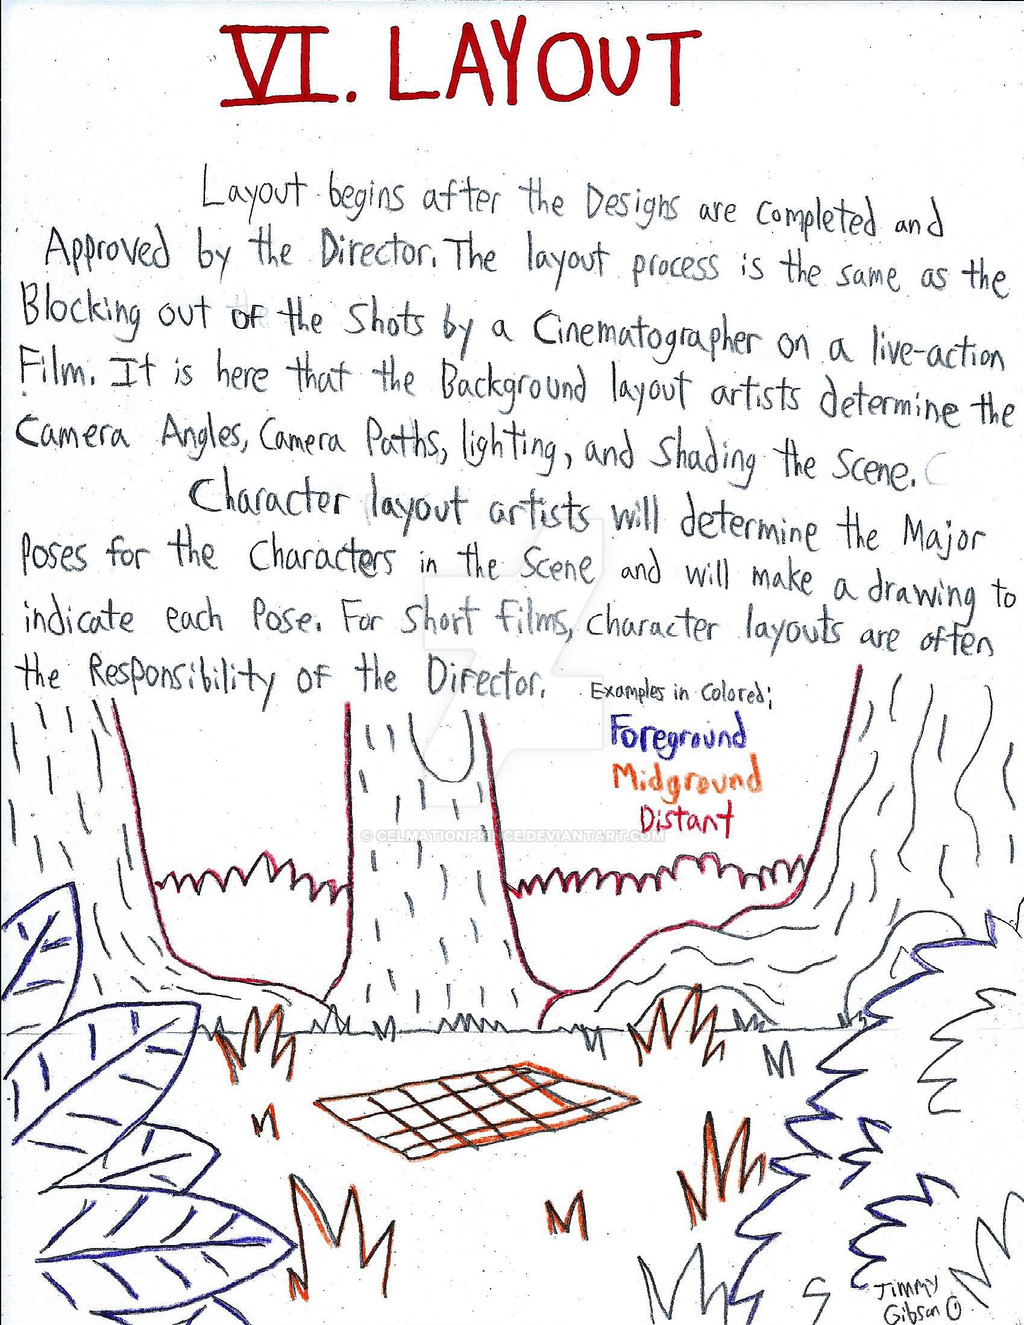 VI. LAYOUT
Layout begins after the Designs are completed and
Approved by the Director. The layout process is the same as the
Blocking out of the shots by a Cinematographer on a live-action
Film. It is here that the Background layout artists determine the
Camera Angles, Camera Paths, lighting, and shading the scene.
Character layout artists will determine the Major
Poses for the Characters in the Scene and will make a drawing to
indicate each Pose. For short films, character layouts are often
the Responsibility of the Director.
Examples in Colored;
Foreground
Midground
Distant
© CELMATIONPRINCE.DEVIANTART.COM
Timmy
Gibson